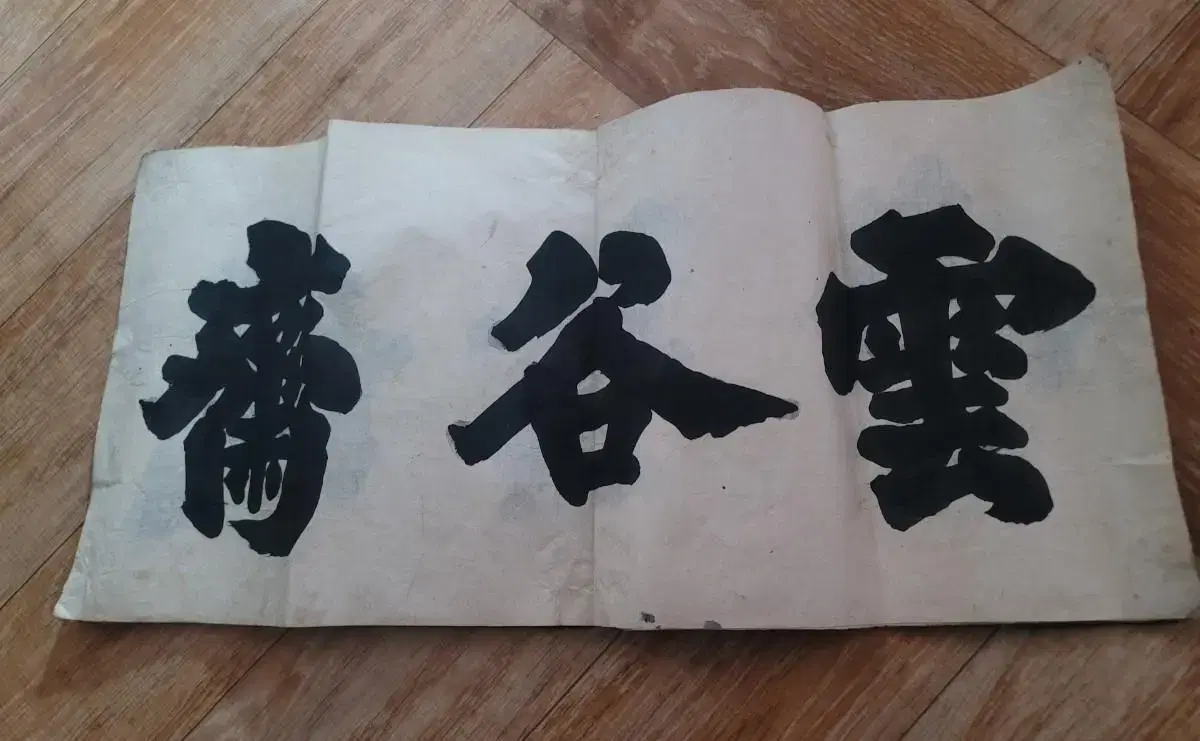 雲谷齋